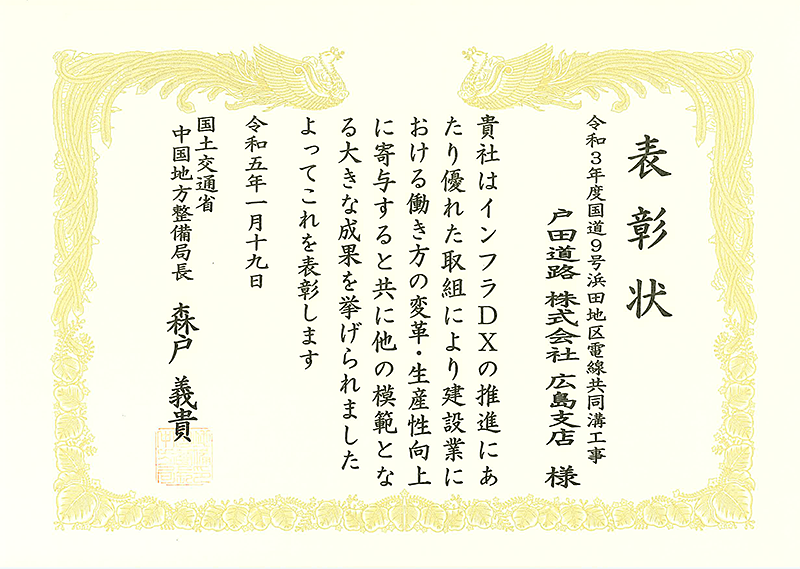 表彰状
令和３年度国道９号浜田地区電線共同溝工事
戸田道路 株式会社 広島支店 様
貴社はインフラＤＸの推進にあ
たり優れた取組により建設業に
おける働き方の変革・生産性向上
に寄与すると共に他の模範とな
る大きな成果を挙げられました
よってこれを表彰します
令和五年一月十九日
国土交通省
中国地方整備局長 森戸 義貴